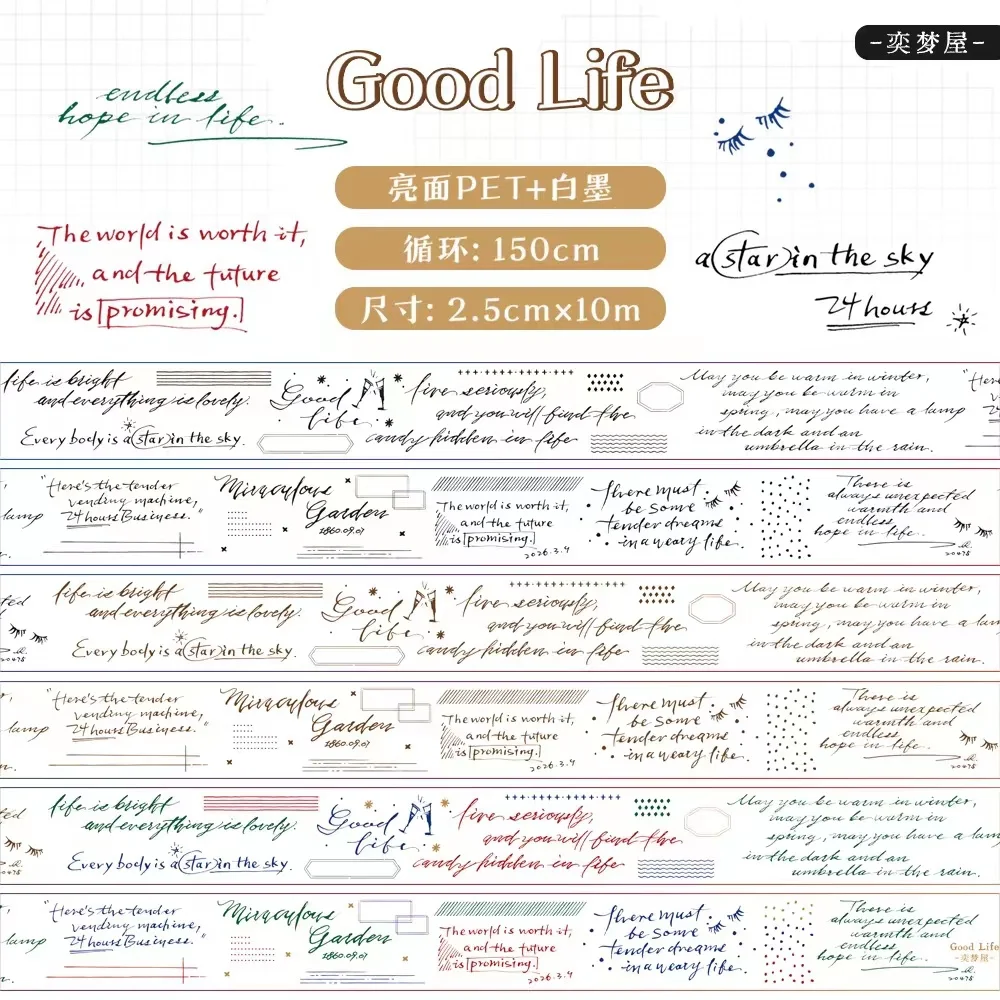 -奕梦屋-
Good Life
endless
hope in life.
亮面PET+白墨
循环: 150cm
尺寸: 2.5cm×10m
The world is worth it,
and the future
is promising.
a star in the sky
24 hours
life is bright
and everything is lovely.
Every body is a star in the sky.
Good
life.
live seriously,
and you will find the
candy hidden in life
May you be warm in winter,
may you be warm in
spring, may you have a lamp
in the dark and an
umbrella in the rain.
"Her
lamp
"Here's the tender
vending machine,
24 hours Business."
Miraculous
Garden
1860.09.07
The world is worth it,
and the future
is promising.
2026.3.4
There must
be some
tender dreams
in a weary life.
There is
always unexpected
warmth and
endless
hope in life.
20475
ted
20475
life is bright
and everything is lovely.
Every body is a star in the sky.
Good
life.
live seriously,
and you will find the
candy hidden in life
May you be warm in winter,
may you be warm in
spring, may you have a lam
in the dark and an
umbrella in the rain.
lamp
"Here's the tender
vending machine,
24 hours Business."
Miraculous
Garden
1860.09.07
The world is worth it,
and the future
is promising.
2026.3.4
There must
be some
tender dreams
in a weary life.
There is
always unexpected
warmth and
endless
hope in life.
20475
ted
20475
life is bright
and everything is lovely.
Every body is a star in the sky.
Good
life.
live seriously,
and you will find the
candy hidden in life
May you be warm in winter,
may you be warm in
spring, may you have a lam
in the dark and an
umbrella in the rain.
lamp
"Here's the tender
vending machine,
24 hours Business."
Miraculous
Garden
1860.09.07
The world is worth it,
and the future
is promising.
2026.3.4
There must
be some
tender dreams
in a weary life.
There is
always unexpected
warmth and
endless
hope in life.
20475
Good Life
-奕梦屋-